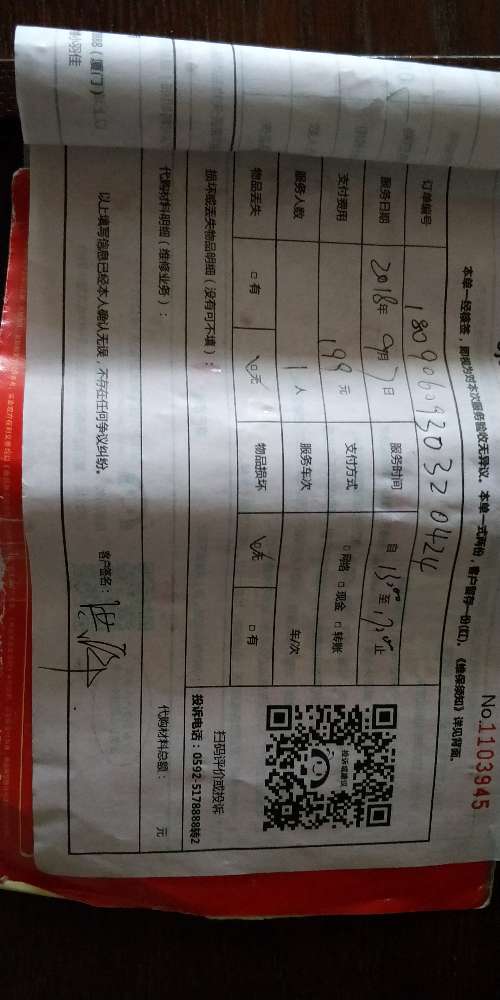 No.1103945
本单一经签签，即视为对本次服务验收无异议。本单一式两份，客户留存一份(红)。《维保须知》详见背面。
订单编号 18090609320320424
服务日期 2018年 9月 7日 服务时间 自 13:00 至 17:00 止
支付费用 199 元 支付方式 □网络 □现金 □转账
服务人数 1 人 服务车次 车/次
物品丢失 □有 ☑无 物品损坏 ☑无 □有
损坏或丢失物品明细（没有可不填）：
投诉或建议
扫码评价或投诉
投诉电话：0592-5178888转2
代购材料明细（维修业务）： 代购材料总额： 元
以上填写信息已经本人确认无误，不存在任何争议纠纷。
客户签名：